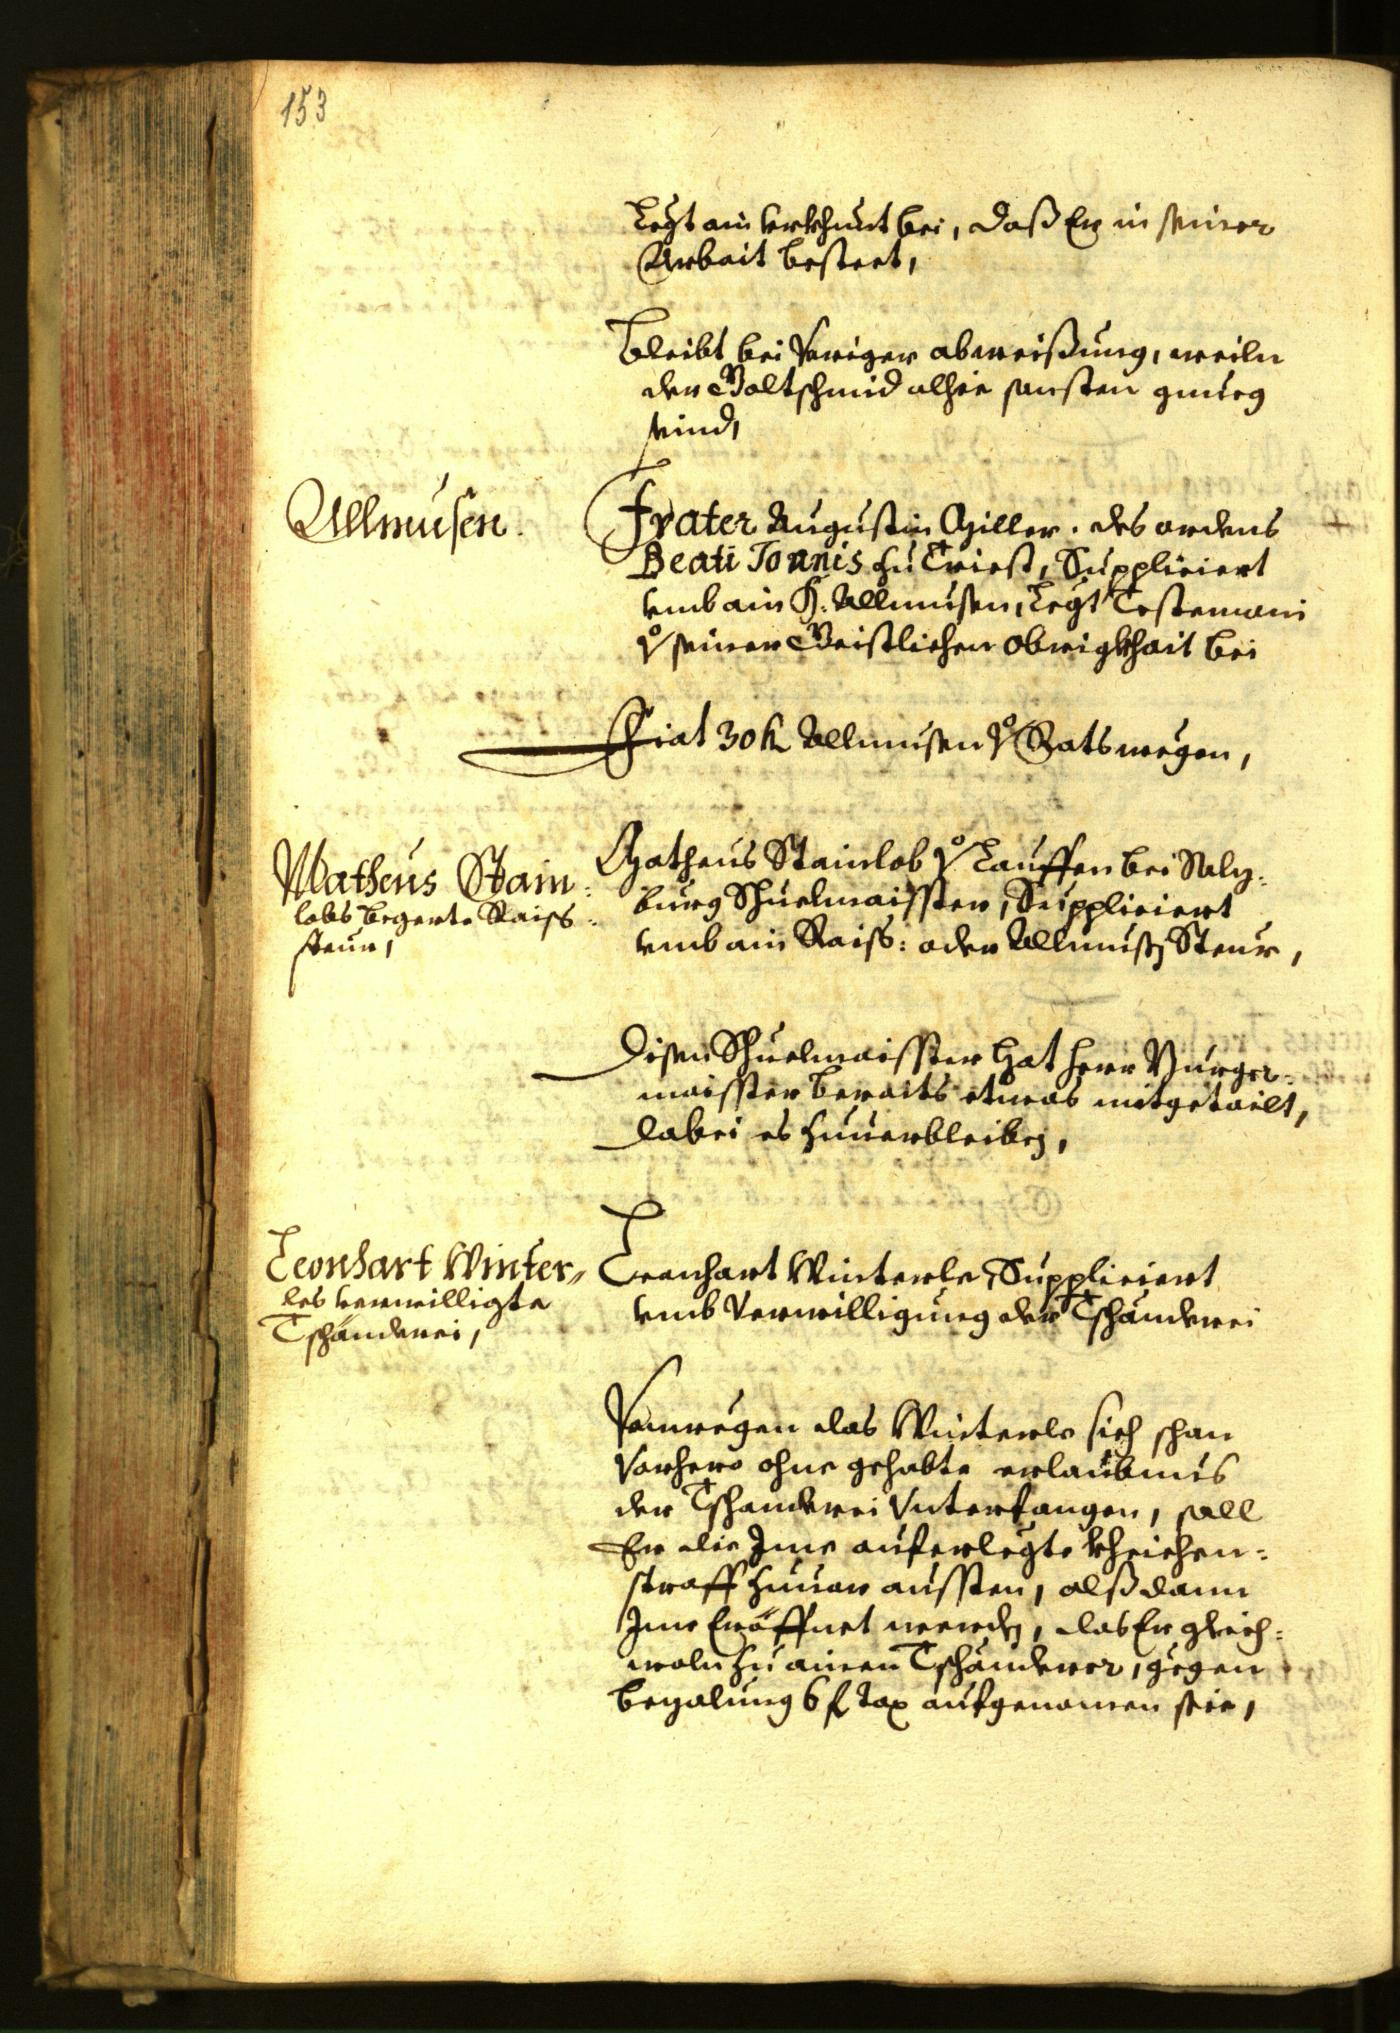 153
Legt ain Urkhundt bei, daß Er in seiner
Arbait besteet,
Bleibt bei voriger abweißung, weiln
der Goltschmid alhie sonsten gnueg
seind,
Allmusen.
Frater Augustin Hiller. des ordens
Beati Joannis zu Triest, Suppliciert
umb ain H. Allmusen, Legt Testemoni
vo seiner Geistlichen Obrigkhait bei
Fiat 30 k Allmusen vo Rats wegen,
Matheus Stain-
lobs begerte Raiss-
steur,
Matheus Stainlob vo Lauffen bei Salz-
burg Schuelmaisster, Suppliciert
umb ain Raiss: oder Allmusen Steur,
Disen Schuelmaisster hat herr Burger-
maisster beraits etwas mitgetailt,
dabei es zuverbleiben,
Leonhart Winter-
les verwilligte
Tschanderei,
Leonhart Winterle, Suppliciert
umb Verwilligung der Tschanderei
Vonwegen das Winterle sich schon
vorhero ohne gehabte erlaubnus
der Tschanderei Unterfangen, soll
Er die Ime auferlegte Kheichen-
straff zuvor aussten, alßdann
Ime Eröffnet werden, das Er gleich-
woln zu ainen Tschanderer, gegen
bezalung 6 fl Tax aufgenomen seie,